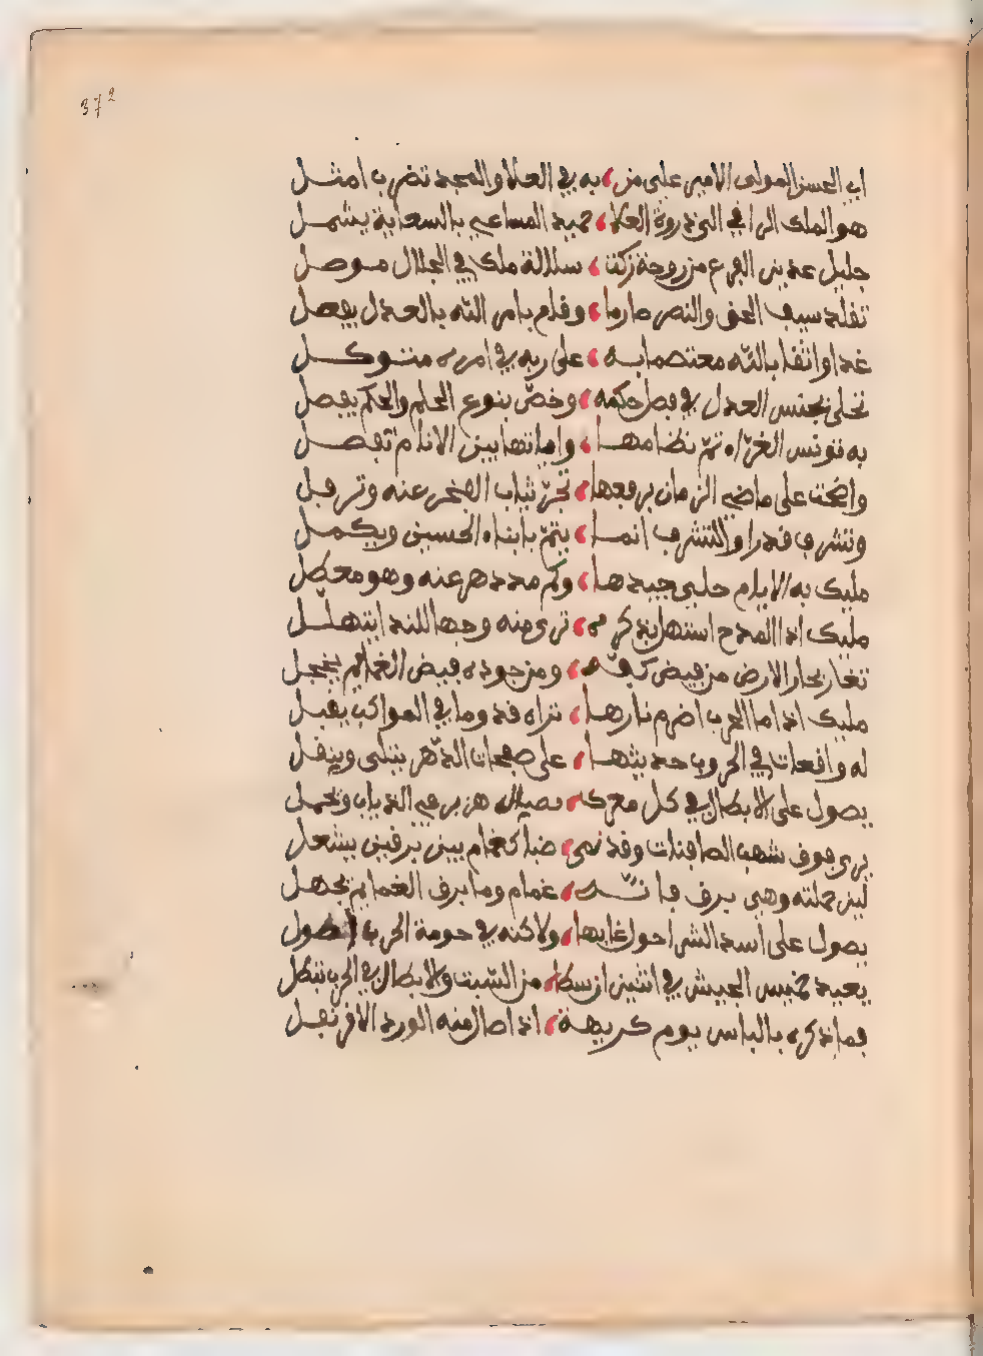 372
ابي الحسن المولى الامير علي من ، به في العلا والمجد تضرب امثل
هو الملك الراقي الى ذروة العلا ، حميد المساعي بالسعاية يشمل
جليل عديني الفرع من زوجة زكت ، سلالة ملك في الجلال موصل
تقلد سيف الحق والنصر صارما ، وقام بامر الله بالعدل يفصل
غدا واثقا بالله معتصما به ، على ربه في امره متوكل
تحلى بجنس العدل في فصل حكمه ، وخص بنوع الحلم والحكم يفصل
به تونس الغراء تم نظامها ، واماتها بين الانام تفضل
واضحت على ماضي الزمان برفعها ، تجر ثياب الفخر عنه وترفل
وتشرف قدرا والتشرف انما ، يتم بابناء الحسين ويكمل
مليك به الايام حلي جيدها ، وكم مدد دهر عنه وهو معطل
مليك اذا المدح استهل بذكره ، ترى منه وجها للندا يتهلل
تغار بحار الارض من فيض كفه ، ومن جوده فيض الغمائم يخجل
مليك اذا ما الحرب اضرم نارها ، تراه قدوما في المواكب يقبل
له واقعات في الحروب حديثها ، على صفحات الدهر يتلى وينقل
يصول على الابطال في كل معركة ، نصيال هزبر في الذياب وتحمل
يرى فوق شهب الصافنات وقد نمى ، ضبا كغمام بين برقين يشعل
لين حملته وهي برق فانه ، غمام وما برق الغمايم يجهل
يصول على اسد الشرا حول غابها ، ولاكنه في حومة الحرب اصول
يعيد خميس الجيش في اثنين ان سطا ، من السبت والابطال في الحرب تنكل
فما ذكره بالباس يوم كريهة ، اذا صال منه الورد الا قرنفل